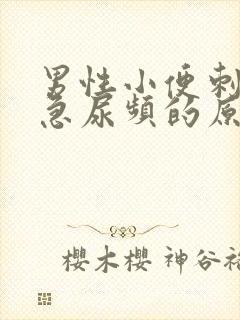 男性小便刺
急尿頻的原
櫻木櫻 神谷裕